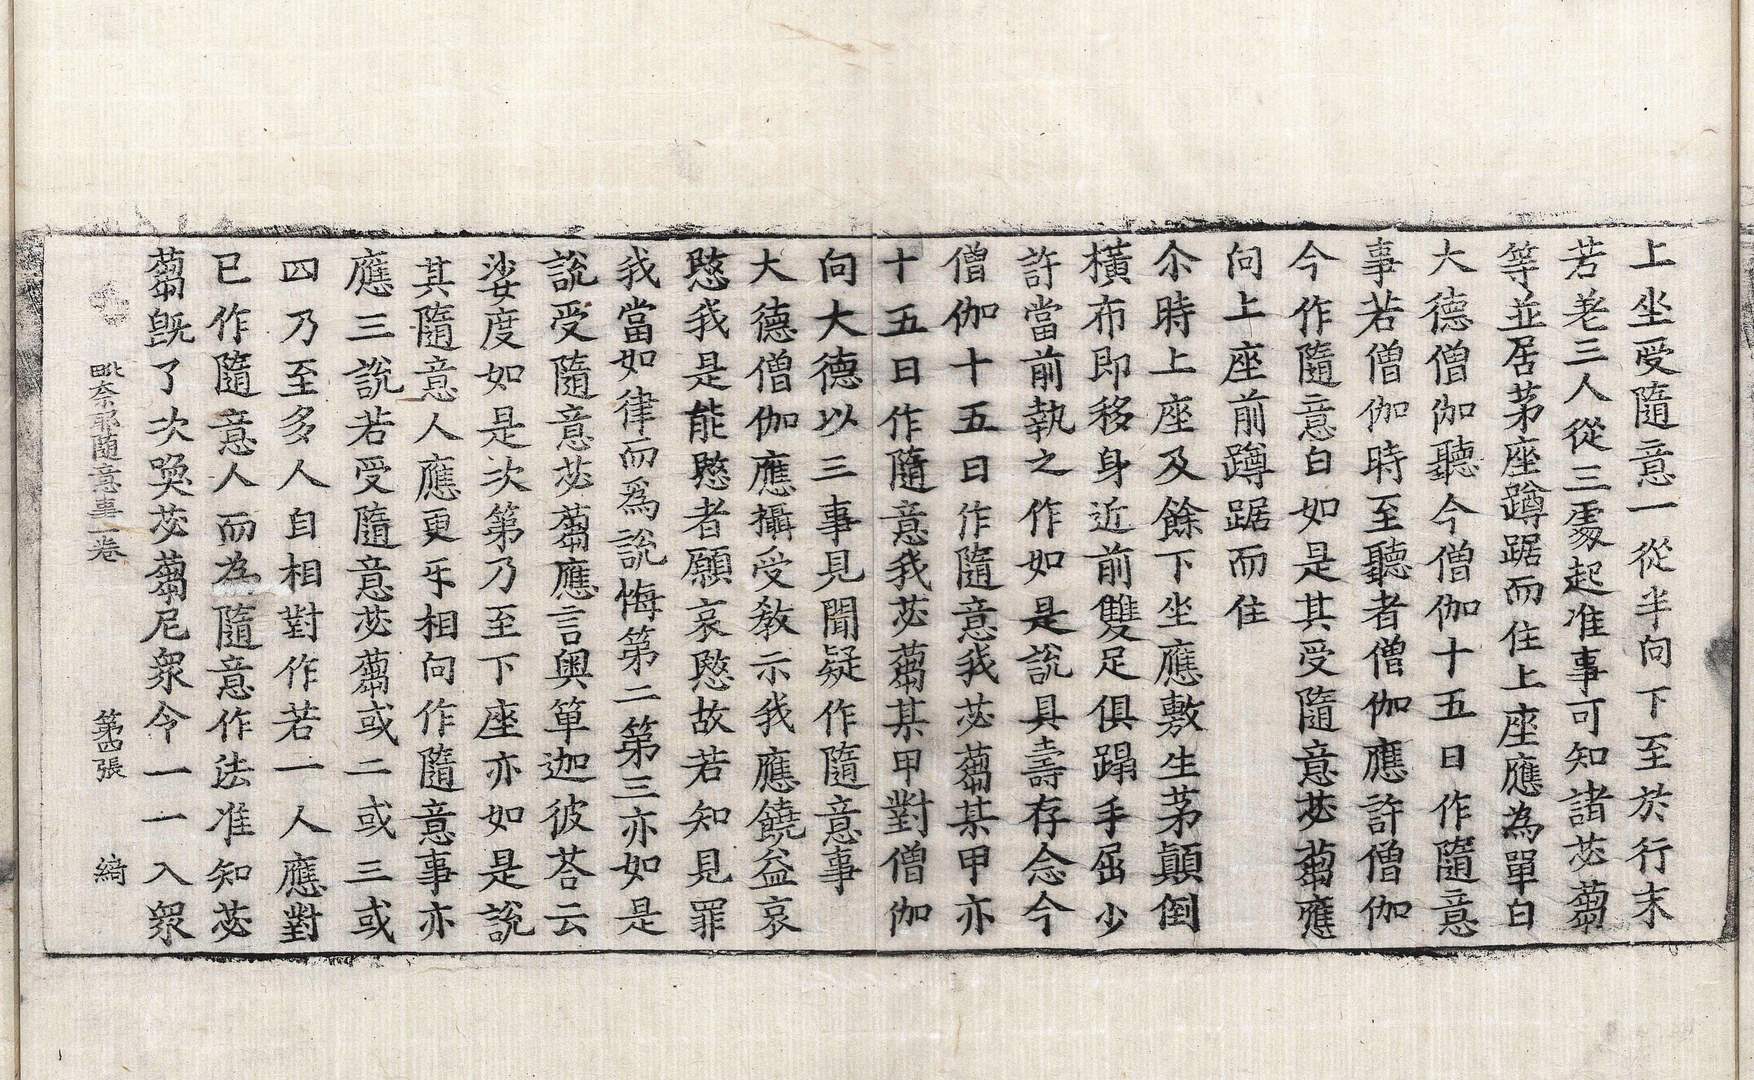 上坐受隨意一從半向下至於行末
若差三人從三處起准事可知諸苾蒭
等並居茅座蹲踞而住上座應為單白
大德僧伽聽今僧伽十五日作隨意
事若僧伽時至聽者僧伽應許僧伽
今作隨意白如是其受隨意苾蒭應
向上座前蹲踞而住
尒時上座及餘下坐應敷生茅顛倒
橫布即移身近前雙足俱蹋手屈少
許當前執之作如是說具壽存念今
僧伽十五日作隨意我苾蒭某甲亦
十五日作隨意我苾蒭某甲對僧伽
向大德以三事見聞疑作隨意事
大德僧伽應攝受教示我應饒益哀
愍我是能愍者願哀愍故若知見罪
我當如律而爲說悔第二第三亦如是
說受隨意苾蒭應言奧箄迦彼荅云
娑度如是次第乃至下座亦如是說
其隨意人應更㸦相向作隨意事亦
應三說若受隨意苾蒭或二或三或
四乃至多人自相對作若一人應對
已作隨意人而為隨意作法准知苾
蒭旣了次喚苾蒭尼衆令一一入衆
毗奈耶隨意事一卷　第四張　綺